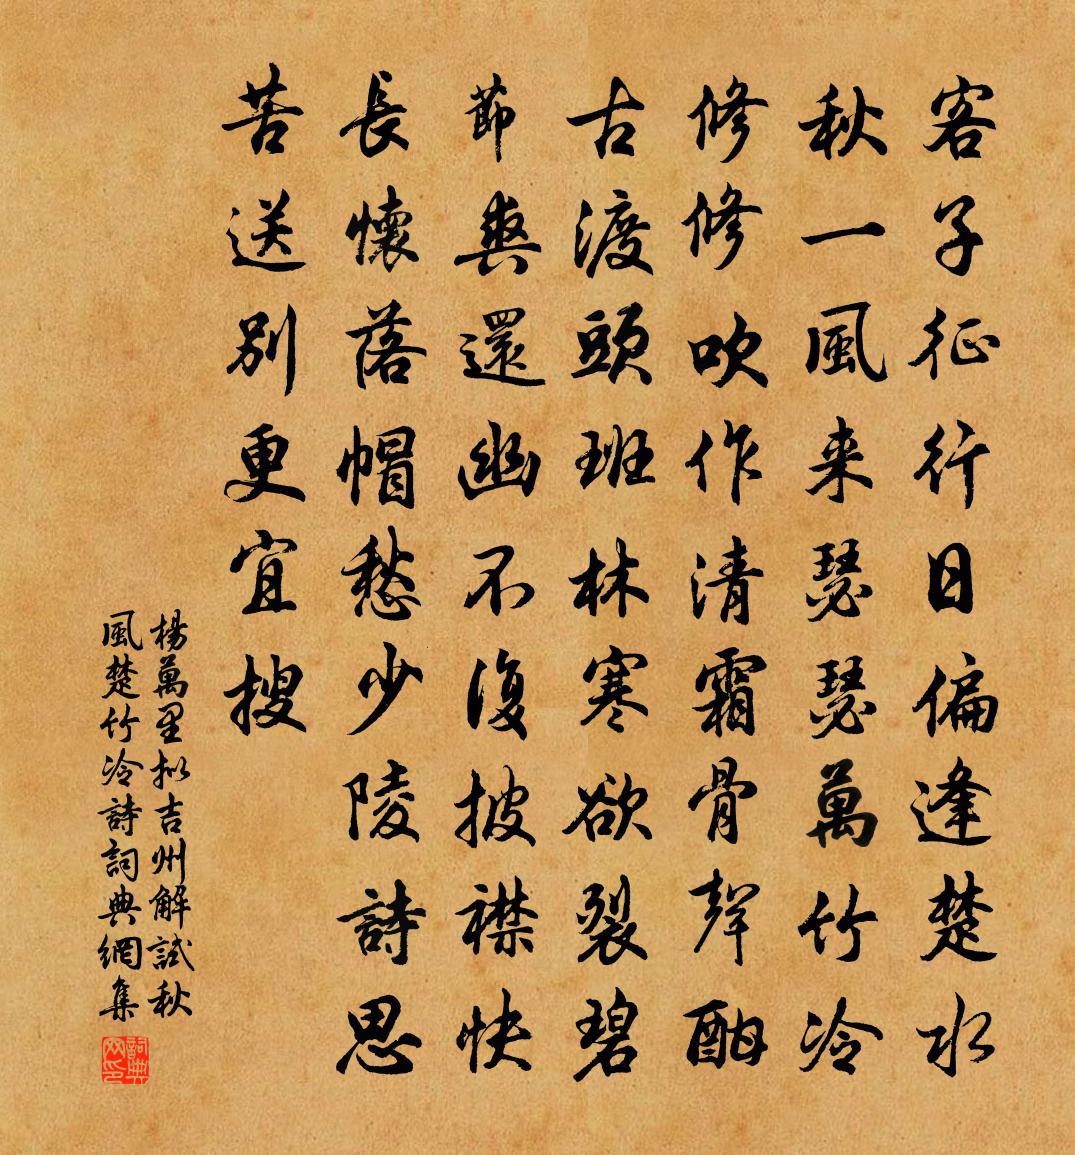 客子征行日偏逢楚水
秋一風来瑟瑟萬竹冷
修修吹作清霜骨聲酣
古渡頭班林寒欲裂碧
節爽還幽不復披襟快
長懷落帽愁少陵詩思
苦送別更宜搜
楊萬里拟吉州解試秋
風楚竹冷詩詞典網集
詞典
网印